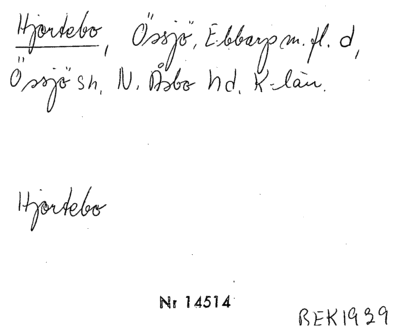 Hjortebo, Össjö, Ebbarp m. fl. d,
Össjö sn, N. Åsbo hd. K-län.
Hjortebo
Nr 14514
BEK1929